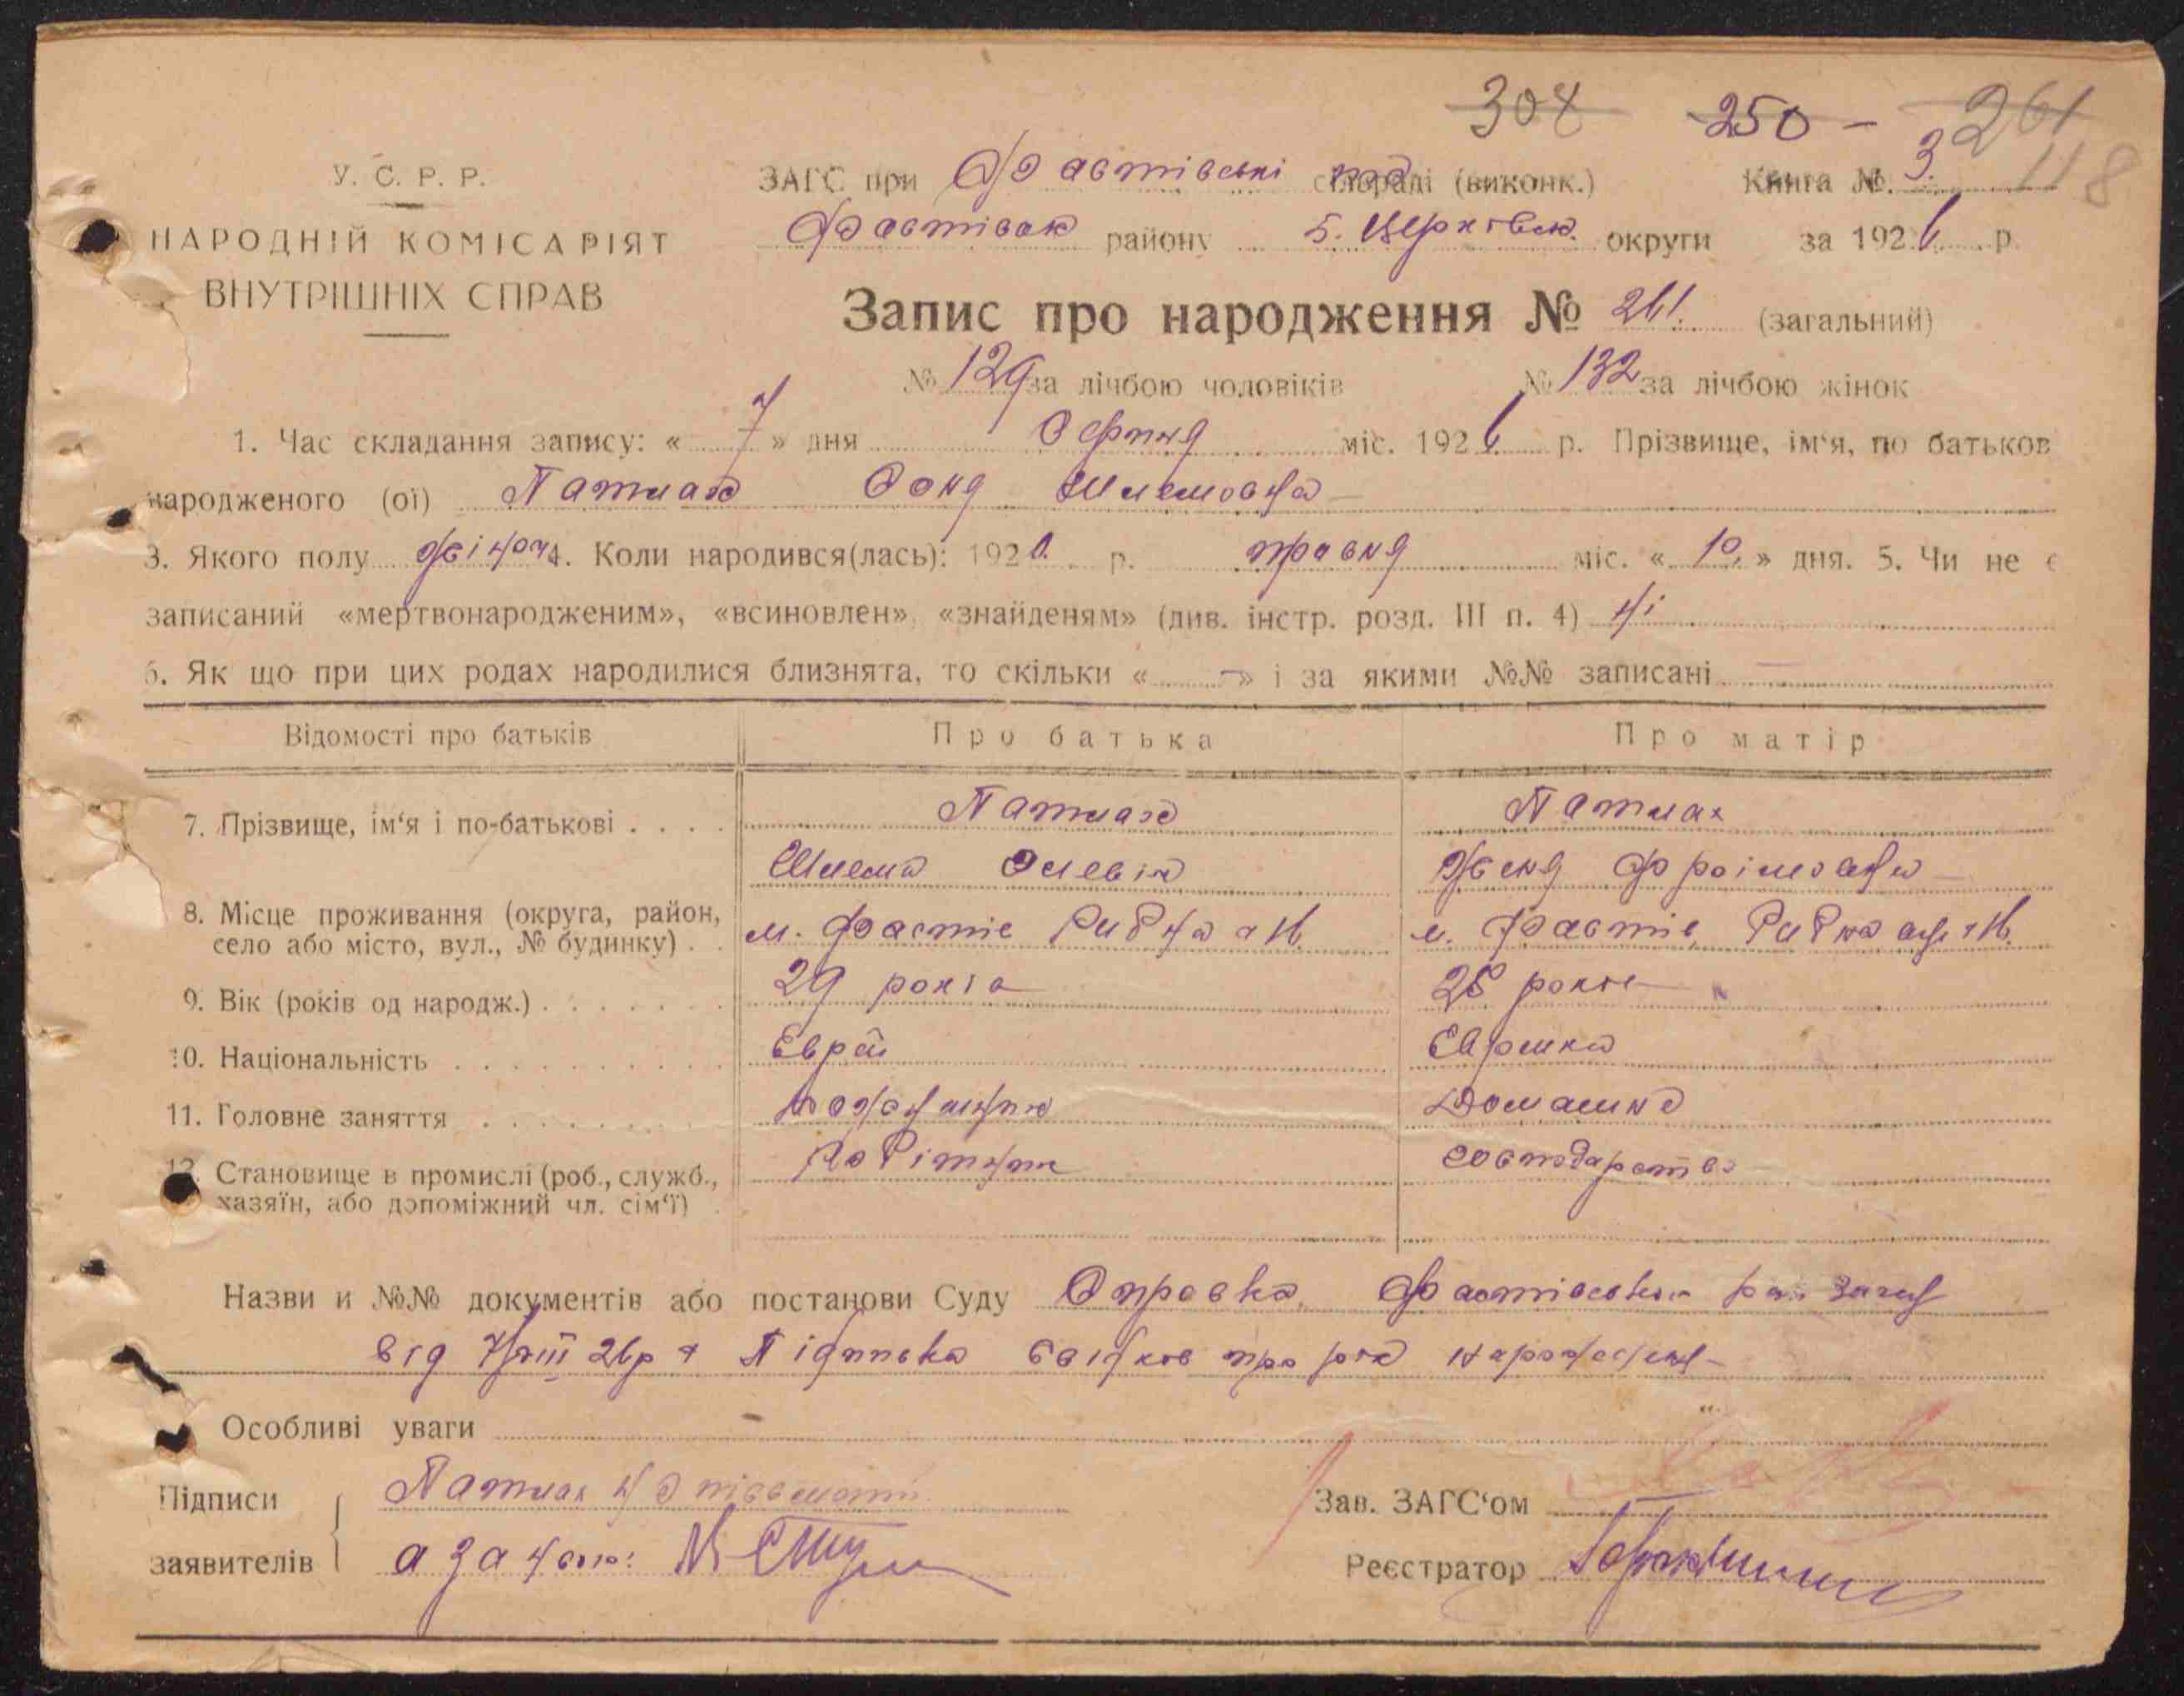 304 250 — 261
У. С. Р. Р.
НАРОДНІЙ КОМІСАРІЯТ
ВНУТРІШНІХ СПРАВ
ЗАГС при Фастівські сільраді (виконк.) Книга №. 3. 118
Фастівск району Б. Церківськ. округи за 1926 р.
Запис про народження № 261. (загальний)
№ 129 за лічбою чоловіків № 132 за лічбою жінок
1. Час складання запису: « 7 » дня Серпня міс. 1926 р. Прізвище, ім‘я, по батьков
народженого (ої) Патлах Соня Шлемовна
3. Якого полу жіноч. 4. Коли народився(лась): 192 р. травня міс. « 10 » дня. 5. Чи не є
записаний «мертвонародженим», «всиновлен», «знайденям» (див. інстр. розд. III п. 4) ні
6. Як що при цих родах народилися близнята, то скільки « — » і за якими №№ записані —
Відомості про батьків Про батька Про матір
7. Прізвище, ім‘я і по-батькові Патлах Патлах
Шлема Женя Фроімовна
8. Місце проживання (округа, район, село або місто, вул., № будинку) м. Фастів Рибна м. Фастів, Рибна
9. Вік (років од народж.) 29 років 28 років
10. Національність Еврей Еврейка
11. Головне заняття Домашнє
12. Становище в промислі (роб., служб., хазяїн, або допоміжний чл. сім‘ї) Робітник господарство
Назви и №№ документів або постанови Суду Справка Фастівського рай Загсу
від 7/VIII 26р Підписка батьков про народження
Особливі уваги —
Підписи заявителів Патлах
а за
Зав. ЗАГС‘ом
Реєстратор